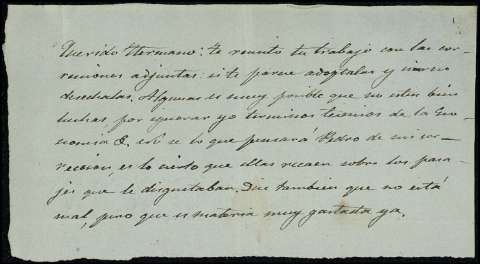 Querido Hermano: te remito tu trabajo con las cor-
recciones adjuntas: si te parece adóptalas y si no
deséchalas. Algunas es muy posible que no esten bien
hechas, por ignorar yo terminos tecnicos de la
nomia &, no se lo que pensará Pedro de mi cor-
reccion, es lo cierto que ellas recaen sobre los para-
jes que le disgustaban. Dice tambien que no está
mal, pero que es materia muy gastada ya.